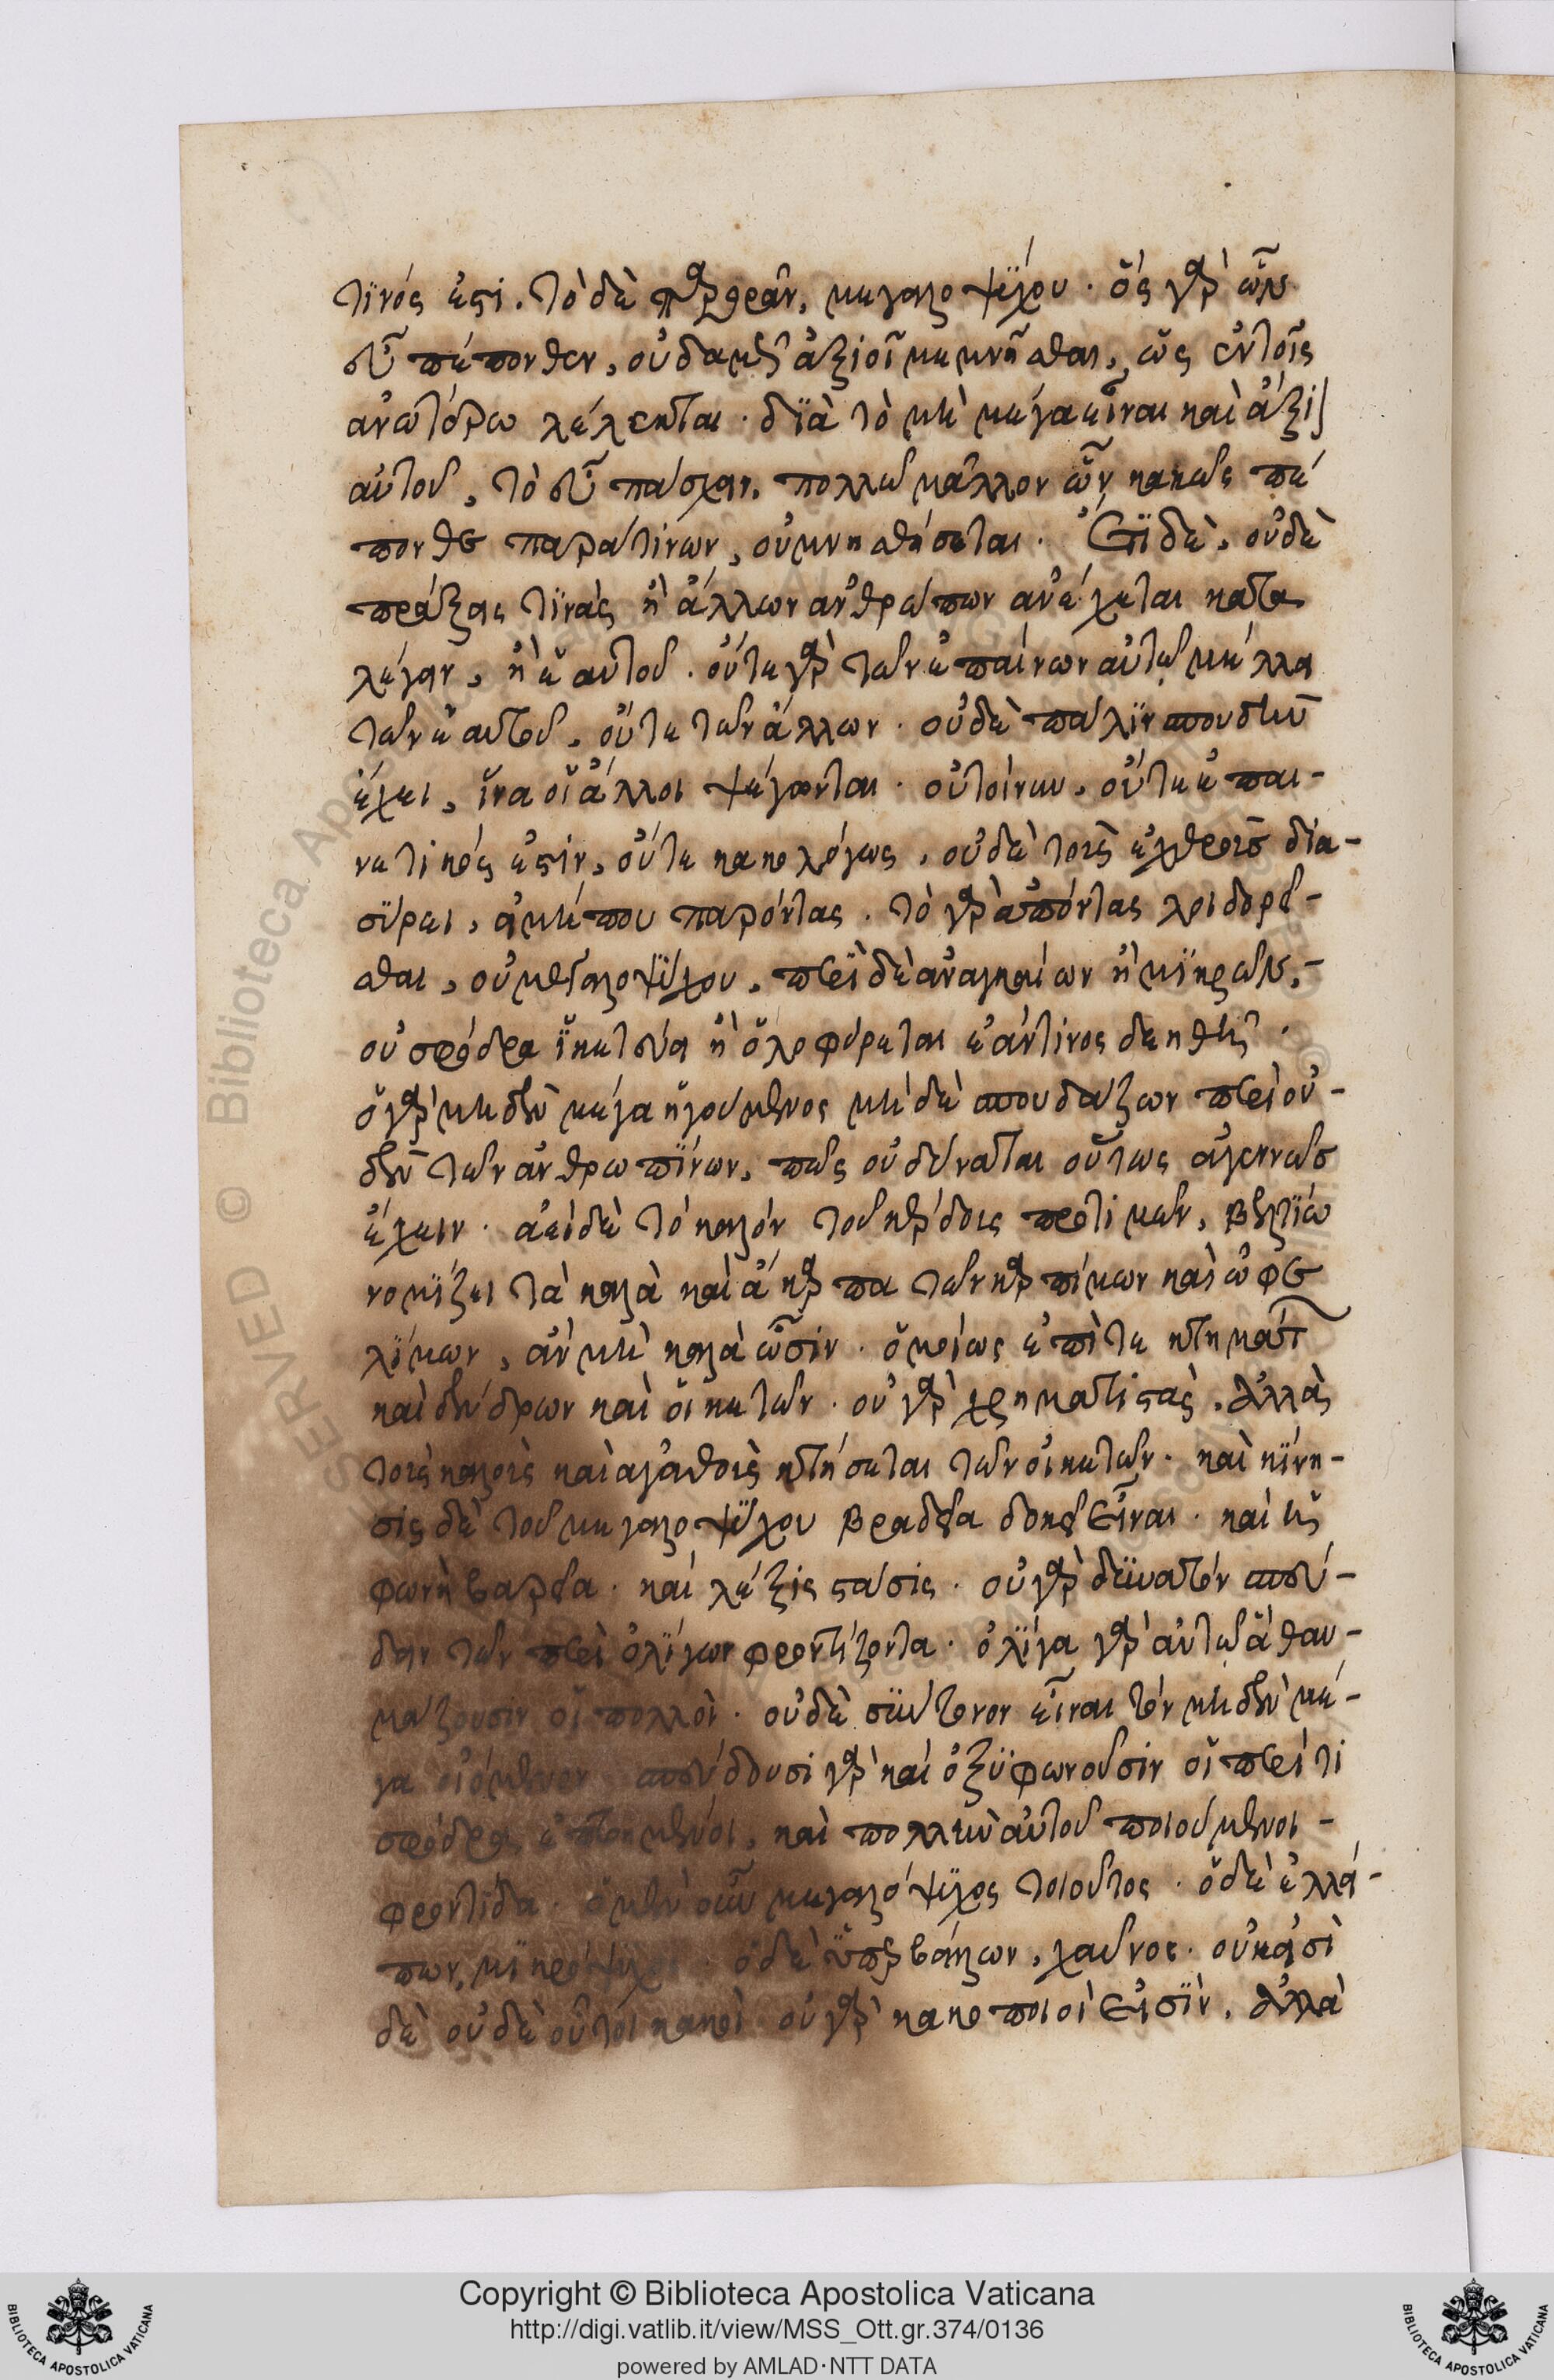 τινός ἐστι. τὸ δὲ παρορᾶν, μεγαλοψύχου. ὅς γὰρ ὧν
εὖ πέπονθεν, οὐδαμῶς ἀξιοῖ μεμνῆσθαι, ὡς ἐν τοῖς
ἀνωτέρω λέλεκται. διὰ τὸ μὴ μέγα εἶναι καὶ ἄξιον
αὐτοῦ, τὸ εὖ πάσχειν. πολλῶ μᾶλλον ὧν κακῶς πέ
πονθε παρά τινων, οὐ μνησθήσεται. Ἔτι δὲ, οὐδὲ
πράξεις τινὰς ἢ ἄλλων ἀνθρώπων ἀνέχεται κατα
λέγειν, ἢ ἑαυτοῦ. οὔτε γὰρ τῶν ἐπαίνων αὐτῷ μέλλει
τῶν ἑαυτοῦ, οὔτε τῶν ἄλλων. οὐδὲ πάλιν σπουδὴν
ἔχει, ἵνα οἱ ἄλλοι ψέγωνται. οὐ τοίνυν, οὔτε ἐπαι-
νετικός ἐστιν, οὔτε κακολόγος, οὐδὲ τοῖς ἐχθροῖς δια-
σύρει, εἰ μή που παρόντας. τὸ γὰρ ἀπόντας λοιδορεῖ-
σθαι, οὐ μεγαλοψύχου. περὶ δὲ ἀναγκαίων ἢ μικρῶν,-
οὐ σφόδρα ἱκετεύει ἢ ὀλοφύρεται ἐάν τινος δεηθῇ.
ὁ γὰρ μηδὲν μέγα ἡγούμενος μηδὲ σπουδάζων περὶ οὐ-
δὲν τῶν ἀνθρωπίνων, πῶς οὐ δύναται οὕτως ἀγεννῶς
ἔχειν. ἀεὶ δὲ τὸ καλόν τοῦ κέρδους προτιμῶν, βελτίω
νομίζει τὰ καλὰ καὶ ἄκαρπα τῶν καρπίμων καὶ ὠφε
λίμων, ἂν μὴ καλὰ ὦσιν. ὁμοίως ἐπί τε κτημάτων
καὶ δένδρων καὶ οἰκετῶν. οὐ γὰρ χρηματιστὰς, ἀλλὰ
τοὺς καλοὺς καὶ ἀγαθοὺς κτήσεται τῶν οἰκετῶν. καὶ κίνη-
σις δὲ τοῦ μεγαλοψύχου βραδεῖα δοκεῖ εἶναι. καὶ ἡ
φωνὴ βαρεῖα. καὶ λέξις στάσις. οὐ γὰρ δυνατόν σπεύ-
δειν τῶν περὶ ὀλίγων φροντίζοντα. ὀλίγα γὰρ αὐτῶ ἃ θαυ-
μάζουσιν οἱ πολλοὶ. οὐδὲ σύντονον εἶναι τόν μηδὲν μέ-
γα οἰόμενον. σπεύδουσι γὰρ καὶ ὀξυφωνοῦσιν οἱ περί τι
σφόδρα ἐπτοημένοι, καὶ πολλὴν αὐτοῦ ποιούμενοι-
φροντίδα. ὁ μὲν οὖν μεγαλόψυχος τοιοῦτος. ὁ δὲ ἐλλεί-
πων, μικρόψυχος. ὁ δὲ ὑπερβάλλων, χαῦνος. οὐκ εἰσὶ
δὲ οὐδὲ οὗτοι κακοὶ οὐ γὰρ κακοποιοί εἰσιν, ἀλλὰ
Copyright © Biblioteca Apostolica Vaticana
http://digi.vatlib.it/view/MSS_Ott.gr.374/0136
powered by AMLAD·NTT DATA
BIBLIOTECA APOSTOLICA VATICANA
BIBLIOTECA APOSTOLICA VATICANA